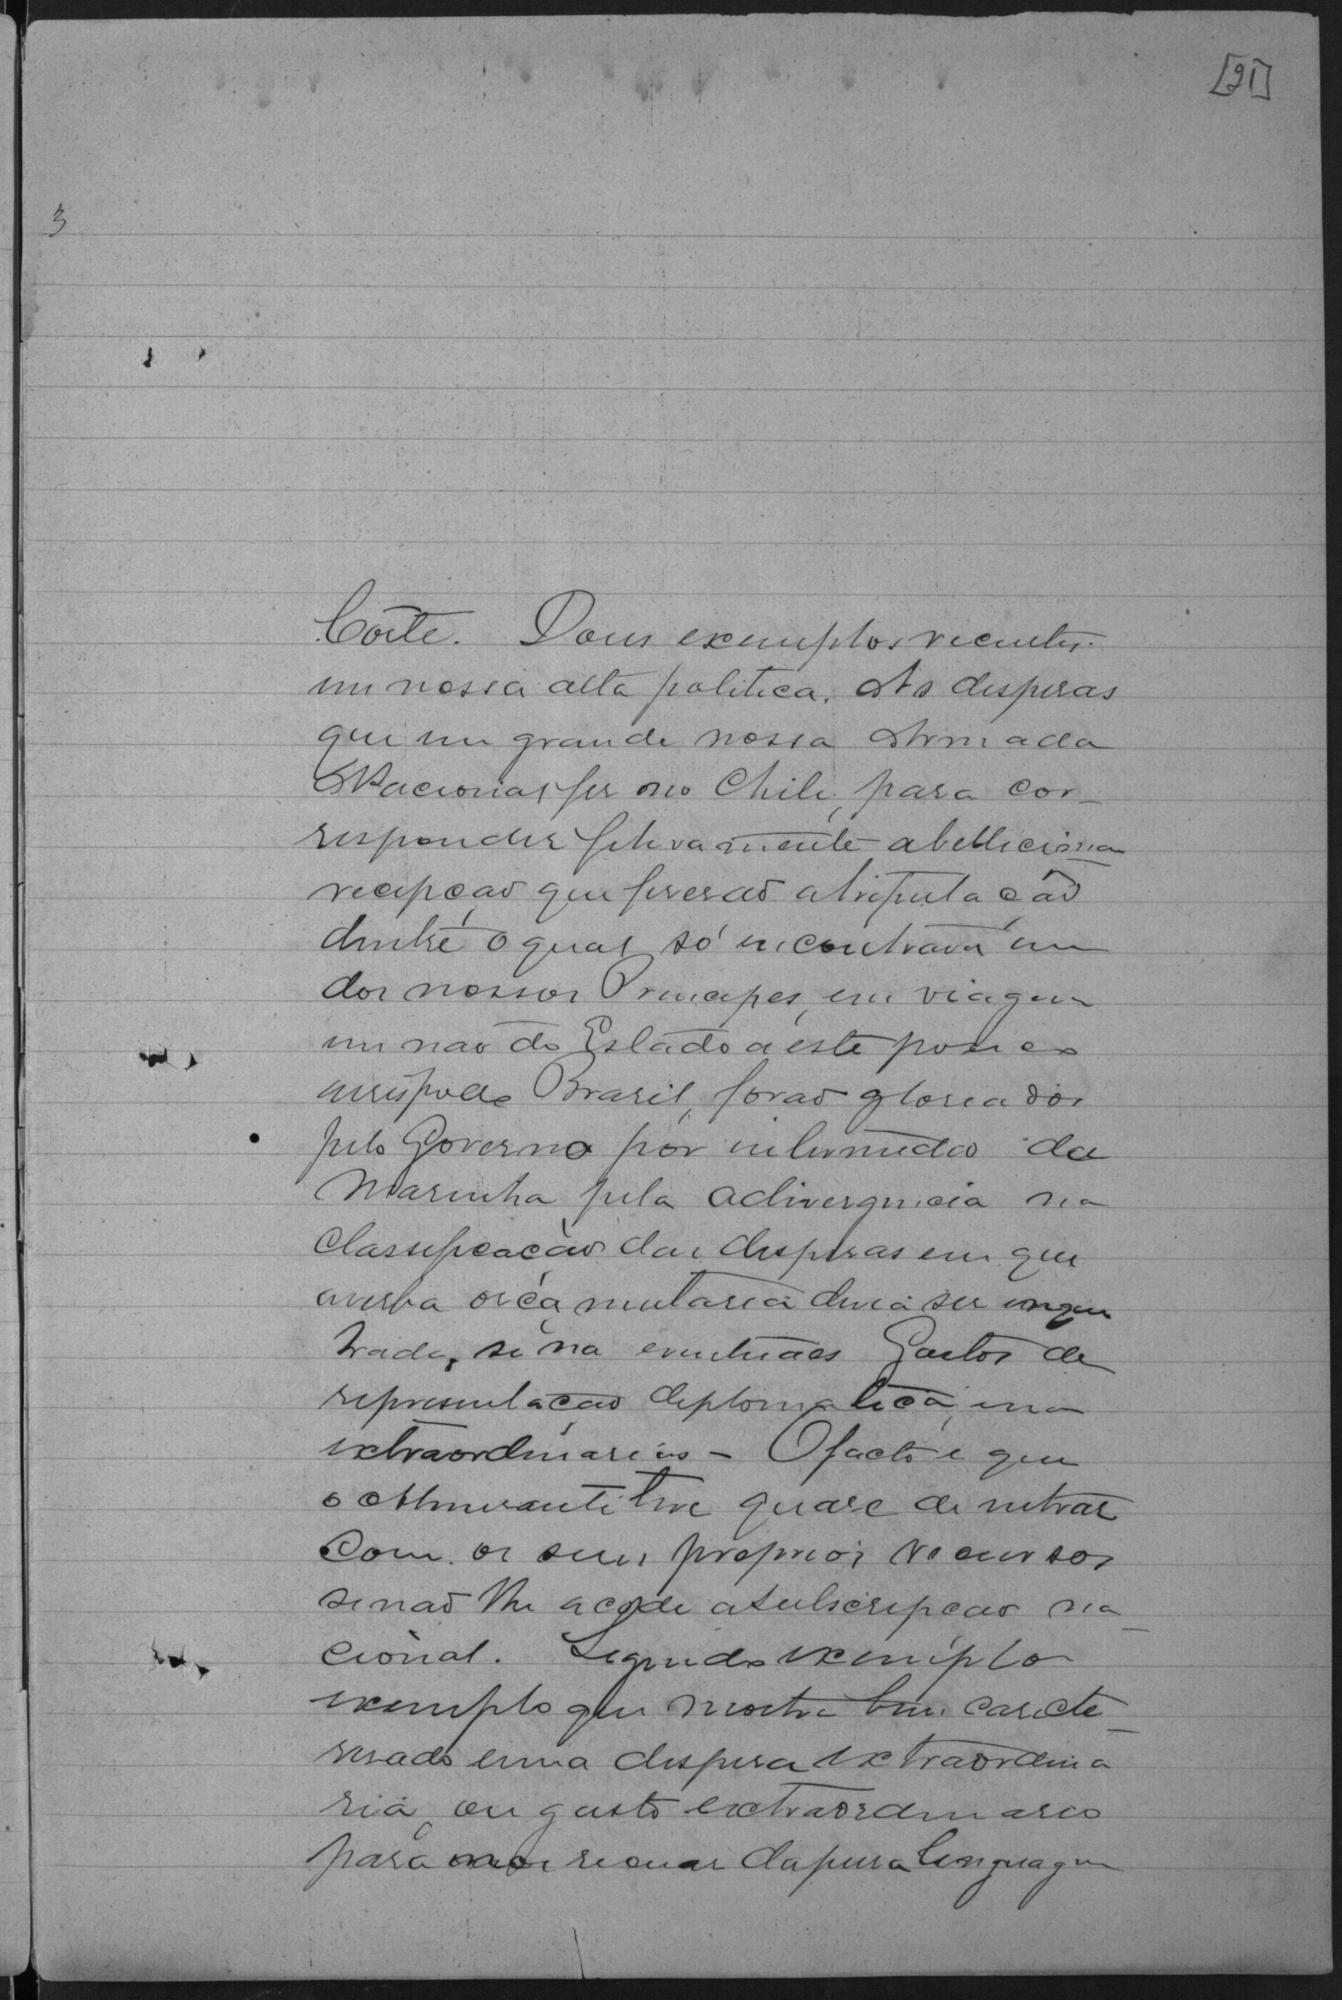 [21]
3
Côrte. Dous exemplos recentes
em nossa alta politica. As despesas
que um grande nossa Armada
Nacional fez no Chile, para cor-
responder festivamente a bellissima
recepção que fizerão a tripulação
dentre o qual só encontrava um
dos nossos Principes, em viagem
em náo do Estado a este
Brasil, forão glosados
pelo Governo por intermedio da
Marinha pela a divergencia na
classificação das despesas em que
a verba orçamentaria devia ser
trada, si na eventuaes Gastos de
representação diplomatica, em
extraordinarios - O facto é que
o Almirante teve quase de entrar
com os seus proprios recursos
se não lhe acode a subscripção na-
cional. Segundo exemplo
exemplo que mostra bem caracte-
risado uma despesa extraordina
ria, ou gasto extraordinario
para nos recuar da pura linguagem